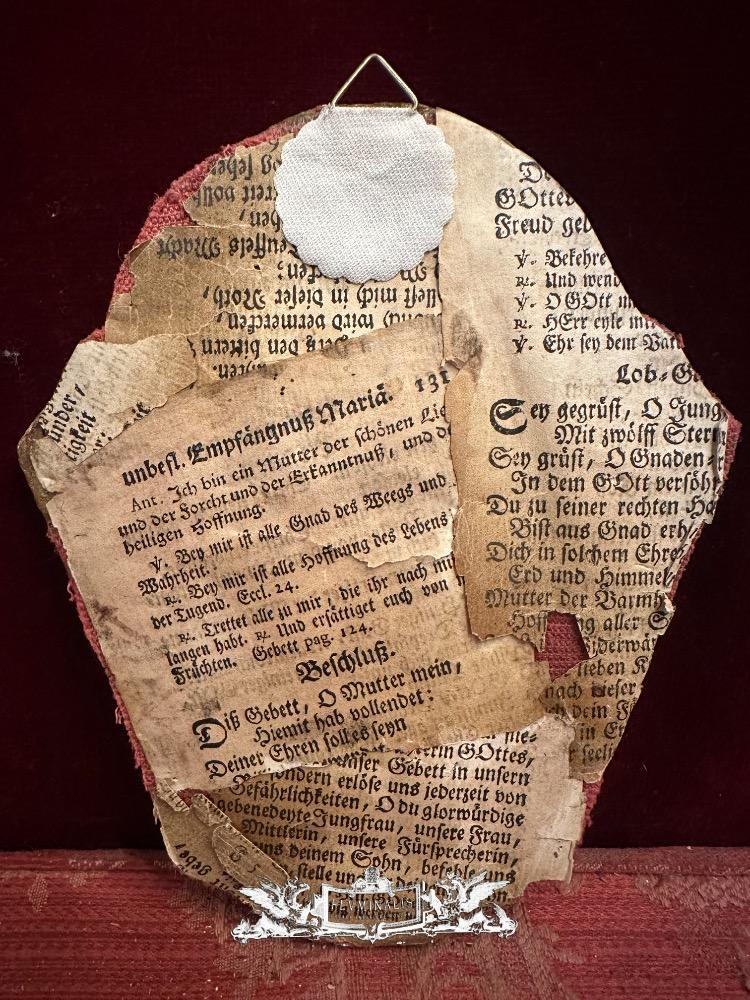 og leben
reit voll
ben,
euffels Macht
llest mich in dieser Noth,
wird vermercken,
den bittern
De
GOtte
Freud geb
℣. Bekehre
℟. Und wend
℣. O GOtt m
℟. HErr eyle mir
℣. Ehr sey dem Vatt
Lob-Ge
Sey gegrüst, O Jung
Mit zwölff Stern
Sey grüst, O Gnaden-
In dem GOtt versöhn
Du zu seiner rechten Ha
Bist aus Gnad erh
Dich in solchem Ehre
Erd und Himmel
Mutter der Barmh
Hoffnung aller S
iderwär
lieben K
nach dieser
dein F
in E
seeli
under,
tigkeit
unbefl. Empfängnuß Mariä. 131
Ant. Ich bin ein Mutter der schönen Lie
und der Forcht und der Erkanntnuß, und de
heiligen Hoffnung.
℣. Bey mir ist alle Gnad des Weegs und
Wahrheit.
℟. Bey mir ist alle Hoffnung des Lebens
der Tugend. Eccl. 24.
℟. Trettet alle zu mir, die ihr nach mir
langen habt. ℟. Und ersättiget euch von
Früchten. Gebett pag. 124.
Beschluß.
Diß Gebett, O Mutter mein,
Hiemit hab vollendet:
Deiner Ehren soll es seyn
erin GOttes,
unser Gebett in unsern
sondern erlöse uns jederzeit von
Gefährlichkeiten, O du glorwürdige
gebenedeyte Jungfrau, unsere Frau,
Mittlerin, unsere Fürsprecherin,
uns deinem Sohn, befehle uns
stelle uns
geber
LUMINALIS